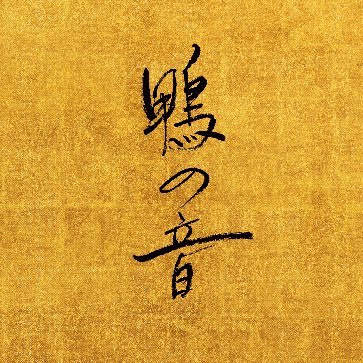 鴨の音